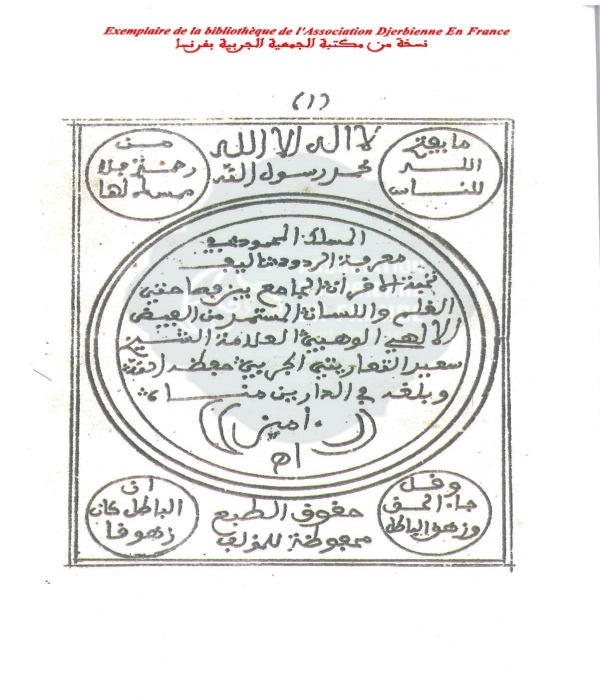 Exemplaire de la bibliothèque de l'Association Djerbienne En France
نسخة من مكتبة الجمعية الجربية بفرنسا
(١)
لا اله الا الله
محمد رسول الله
ما يفتح
الله
للناس
من
رحمة فلا
ممسك لها
المسلك المحمود في
معرفة الردود تاليف
نخبة الاقران الجامع بين فصاحتي
القلم واللسان المستمد من الفيض
الالهي الوهبي العلامة الشيخ
سعيد التعاريتي الجربي حفظه الله
وبلغه في الدارين مناه
امين
اه
وقل
جاء الحق
وزهق الباطل
ان
الباطل كان
زهوقا
حقوق الطبع
محفوظة للمؤلف